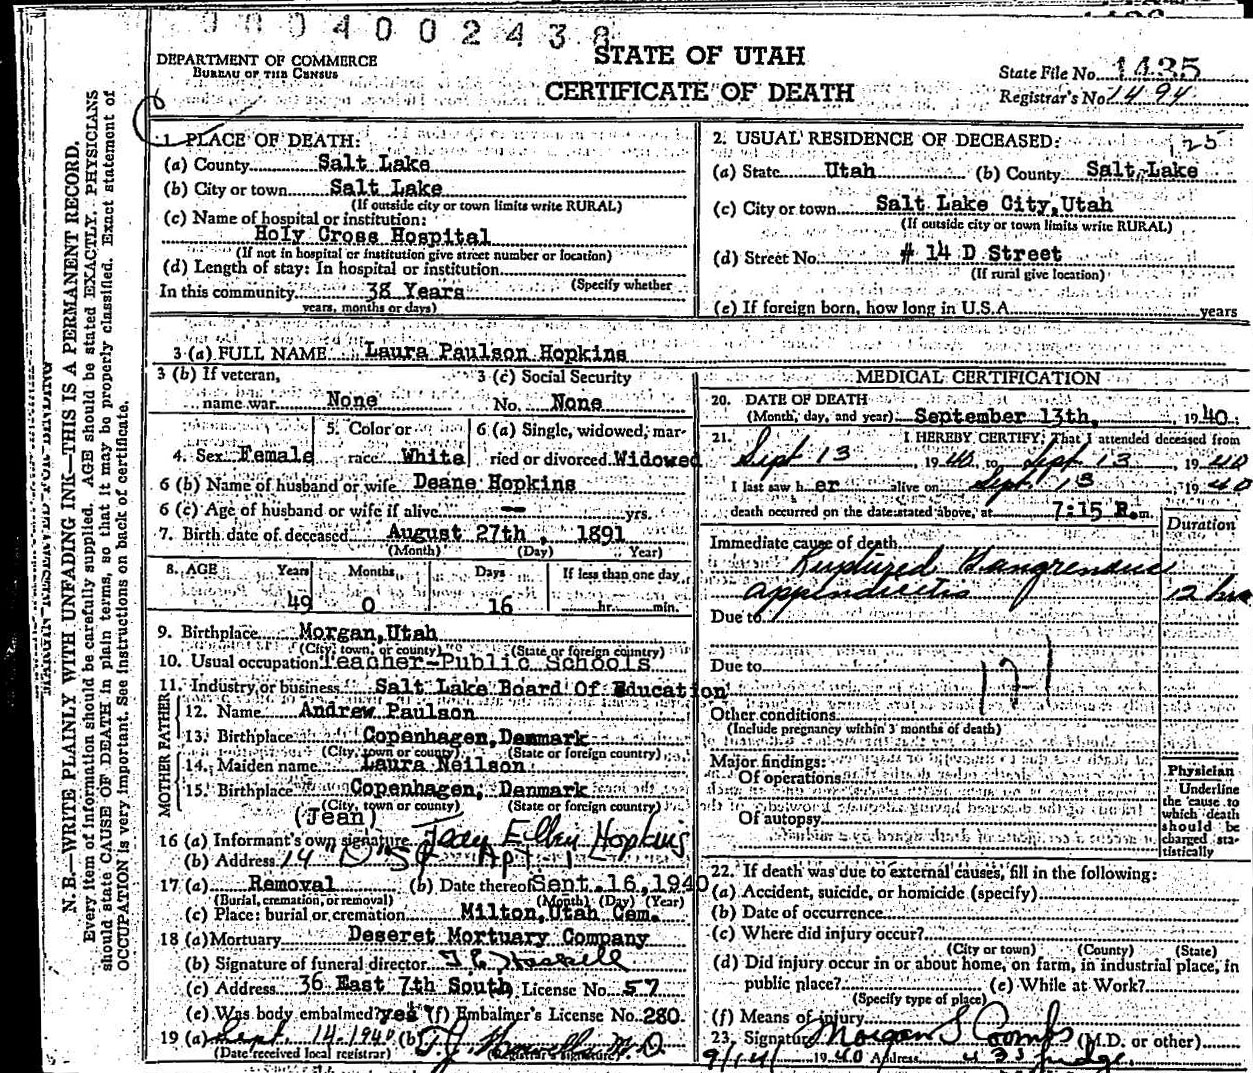 0004002438
DEPARTMENT OF COMMERCE
BUREAU OF THE CENSUS
STATE OF UTAH
CERTIFICATE OF DEATH
State File No. 1435
Registrar's No. 1494
1. PLACE OF DEATH:
(a) County Salt Lake
(b) City or town Salt Lake
(If outside city or town limits write RURAL)
(c) Name of hospital or institution:
Holy Cross Hospital
(If not in hospital or institution give street number or location)
(d) Length of stay: In hospital or institution
(Specify whether
In this community 38 Years
years, months or days)
2. USUAL RESIDENCE OF DECEASED:
125
(a) State Utah (b) County Salt Lake
(c) City or town Salt Lake City, Utah
(If outside city or town limits write RURAL)
(d) Street No. # 14 D Street
(If rural give location)
(e) If foreign born, how long in U.S.A. years
3 (a) FULL NAME Laura Paulson Hopkins
3 (b) If veteran,
name war None
3 (c) Social Security
No. None
4. Sex Female
5. Color or
race White
6 (a) Single, widowed, mar-
ried or divorced Widowed
6 (b) Name of husband or wife Deane Hopkins
6 (c) Age of husband or wife if alive -- yrs.
7. Birth date of deceased August 27th, 1891
(Month) (Day) Year)
8. AGE Years Months Days If less than one day
49 0 16 hr. min.
9. Birthplace Morgan, Utah
(City, town, or county) (State or foreign country)
10. Usual occupation Teacher-Public Schools
11. Industry or business Salt Lake Board Of Education
FATHER
12. Name Andrew Paulson
13. Birthplace Copenhagen, Denmark
(City, town or county) (State or foreign country)
MOTHER
14. Maiden name Laura Neilson
15. Birthplace Copenhagen, Denmark
(City, town or county) (State or foreign country)
(Jean)
16 (a) Informant's own signature Jean Ellen Hopkins
(b) Address 14 D St Apt 1
17 (a) Removal (b) Date thereof Sept. 16, 1940
(Burial, cremation, or removal) (Month) (Day) (Year)
(c) Place: burial or cremation Milton, Utah Cem.
18 (a) Mortuary Deseret Mortuary Company
(b) Signature of funeral director
(c) Address 36 East 7th South License No. 57
(e) Was body embalmed? yes (f) Embalmer's License No. 280
19 (a) Sept. 14. 1940 (b)
(Date received local registrar) (Registrar's signature)
MEDICAL CERTIFICATION
20. DATE OF DEATH
(Month, day, and year) September 13th, 1940.
21. I HEREBY CERTIFY; That I attended deceased from
Sept 13, 1940, to Sept 13, 1940
I last saw her alive on Sept 13, 1940
death occurred on the date stated above, at 7:15 P.m.
Duration
Immediate cause of death
Ruptured Gangrenous
appendicitis 12 hrs
Due to
Due to
121
Other conditions
(Include pregnancy within 3 months of death)
Major findings:
Of operations
Of autopsy
Physician
Underline
the cause to
which death
should be
charged sta-
tistically
22. If death was due to external causes, fill in the following:
(a) Accident, suicide, or homicide (specify)
(b) Date of occurrence
(c) Where did injury occur?
(City or town) (County) (State)
(d) Did injury occur in or about home, on farm, in industrial place, in
public place? (e) While at Work?
(Specify type of place)
(f) Means of injury
23. Signature Morgan S Coombs (M.D. or other)
9/14/ 1940 Address 435 Judge
N. B.—WRITE PLAINLY WITH UNFADING INK—THIS IS A PERMANENT RECORD.
Every item of information should be carefully supplied. AGE should be stated EXACTLY. PHYSICIANS
should state CAUSE OF DEATH in plain terms, so that it may be properly classified. Exact statement of
OCCUPATION is very important. See instructions on back of certificate.